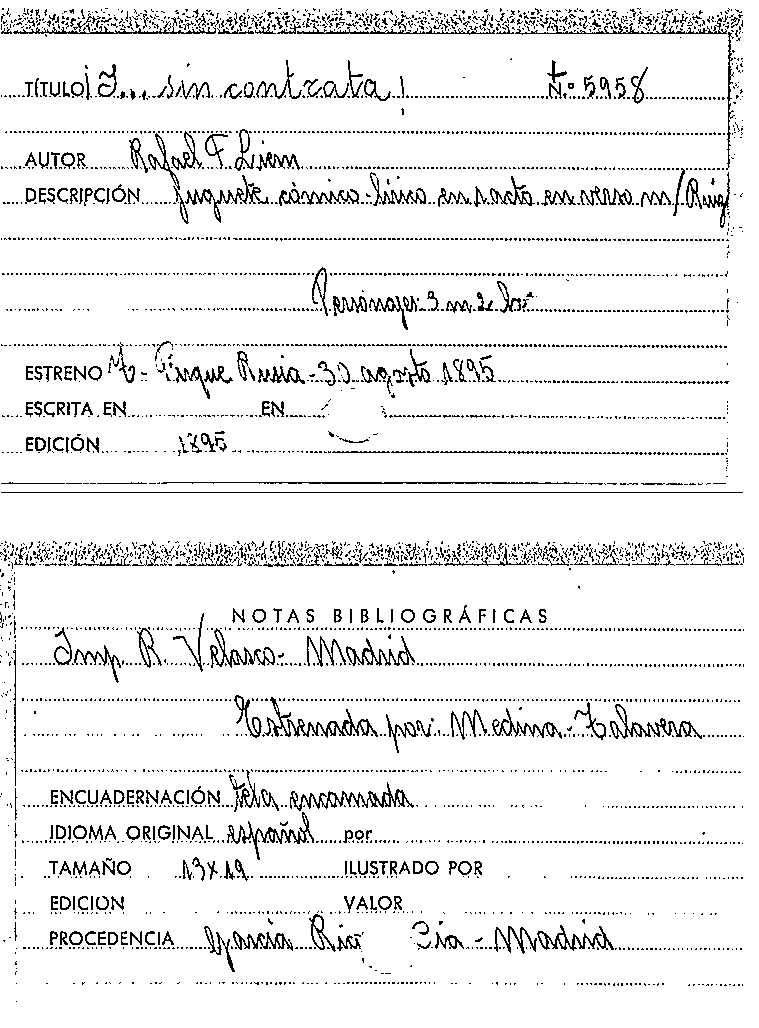 TÍTULO ¡I... sin contrata! t N.º 5958
AUTOR Rafael F Liern
DESCRIPCIÓN Juguete cómico-lírico en 1 acto en verso m/ Ruiz
Personajes 3 m 2 h
ESTRENO Parque Rusia - 30 agosto 1895
ESCRITA EN EN
EDICIÓN 1895
NOTAS BIBLIOGRÁFICAS
Imp. R. Velasco - Madrid
Estrenada por: Medina - Talavera
ENCUADERNACIÓN tela encarnada
IDIOMA ORIGINAL español por
TAMAÑO 13 x 19 ILUSTRADO POR
EDICION VALOR
PROCEDENCIA García Rico Cia - Madrid